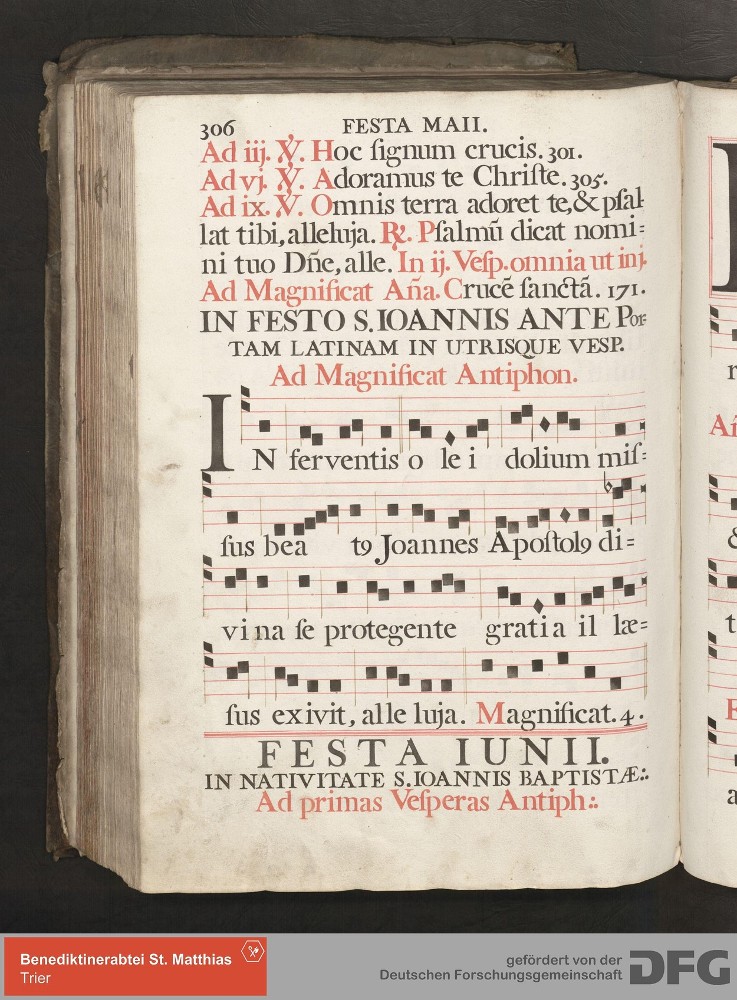 306 FESTA MAII.
Ad iij. ℣. Hoc ſignum crucis. 301.
Ad vj. ℣. Adoramus te Chriſte. 305.
Ad ix. ℣. Omnis terra adoret te, & pſal-
lat tibi, alleluja. ℟. Pſalmū dicat nomi=
ni tuo Dñe, alle. In ij. Veſp. omnia ut in j.
Ad Magnificat Aña. Crucē ſanctā. 171.
IN FESTO S. IOANNIS ANTE POR-
TAM LATINAM IN UTRISQUE VESP.
Ad Magnificat Antiphon.
IN ferventis o le i dolium miſ=
ſus bea tꝰ Joannes Apoſtolꝰ di=
vina ſe protegente gratia il læ=
ſus exivit, alle luja. Magnificat. 4.
FESTA IUNII.
IN NATIVITATE S. IOANNIS BAPTISTÆ:.
Ad primas Veſperas Antiph:.
Benediktinerabtei St. Matthias
Trier
gefördert von der
Deutschen Forschungsgemeinschaft DFG